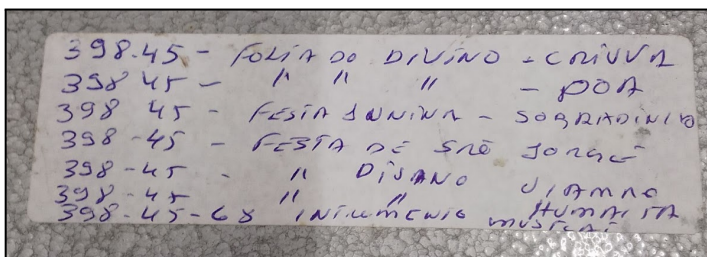 398-45 - FOLIA DO DIVINO - CRIUVA
398 45 - " " " - POA
398 45 - FESTA JUNINA - SOBRADINHO
398-45 - FESTA DE SÃO JORGE
398-45 - " DIVINO VIAMÃO
398-45 " " HUMAITA
398-45-68 INTRUMENTO MUSICAL